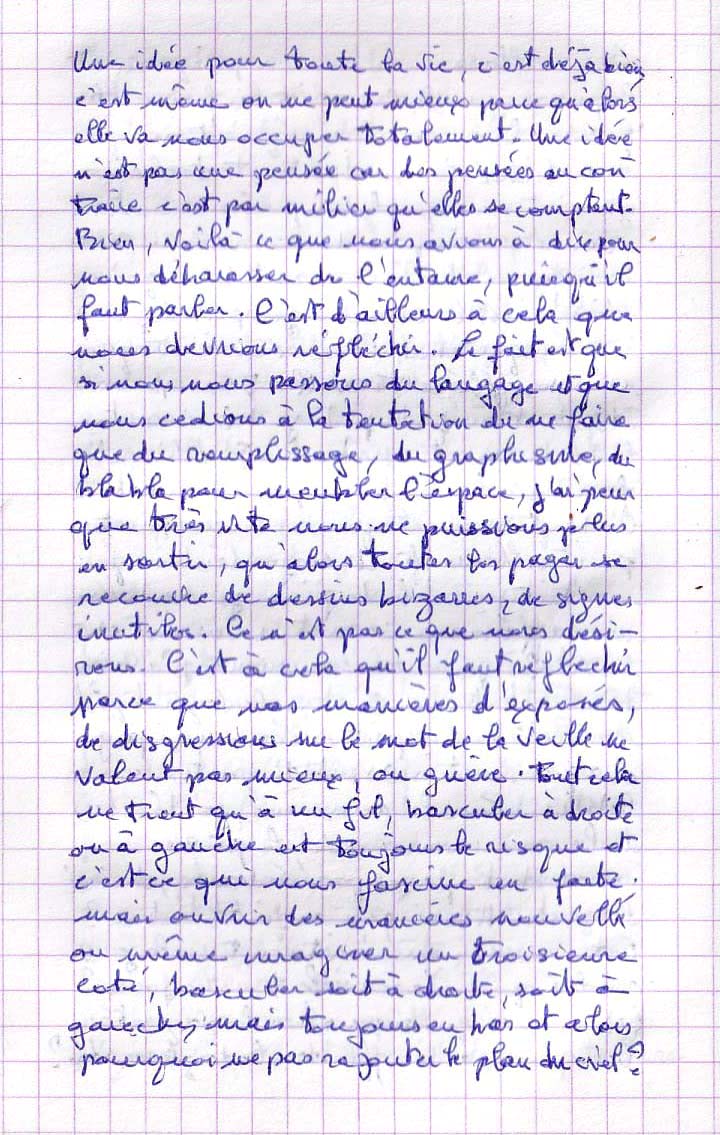 Une idée pour toute la vie, c'est déjà bien,
c'est même on ne peut mieux parce qu'alors
elle va nous occuper totalement. Une idée
n'est pas une pensée car les pensées au con-
traire c'est par milier qu'elles se comptent.
Bien, voilà ce que nous avions à dire pour
nous débarasser de l'entame, puisqu'il
faut parler. C'est d'ailleurs à cela que
nous devrions réfléchir. Le fait est que
si nous nous passons du langage et que
nous cedions à la tentation de ne faire
que du remplissage, du graphisme, du
bla bla pour meubler l'espace, j'ai peur
que très vite nous ne puissions plus
en sortir, qu'alors toutes les pages se
recouvre de dessins bizarres, de signes
inutiles. Ce n'est pas ce que nous dési-
rons. C'est à cela qu'il faut réflechir
parce que nos manières d'exposés,
de disgressions sur le mot de la veille ne
valent pas mieux, ou guère. Tout cela
ne tient qu'à un fil, basculer à droite
ou à gauche est toujours le risque et
c'est ce qui nous fascine en faite.
mais ouvrir des manières nouvelle
ou même imaginer un troisieme
coté, basculer soit à droite, soit à
gauche, mais toujours en bas et alors
pourquoi ne pas rajouter le plan du ciel?